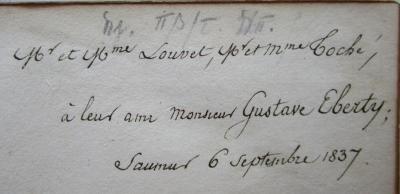 Mr et Mme Louvet, Mr et Mme Toché,
à leur ami Monsieur Gustave Eberty;
Saumur 6 Septembre 1837.